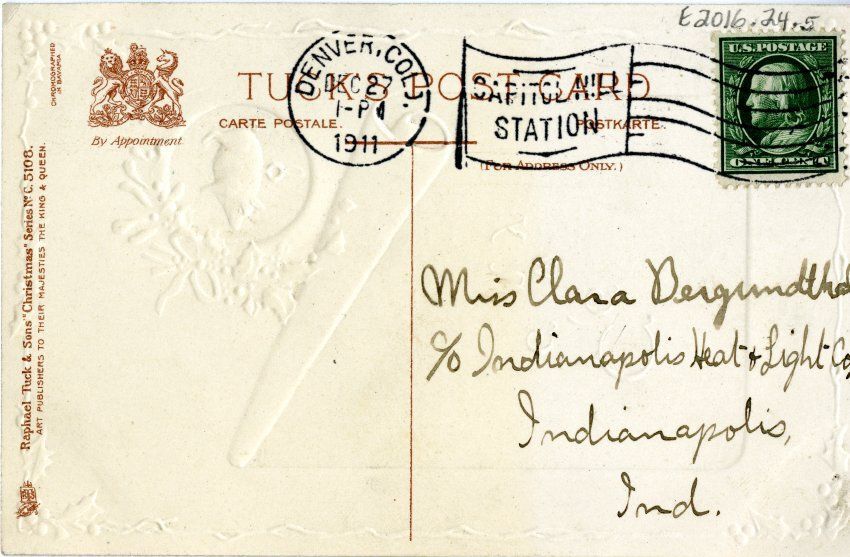 E2016.24.5
CHROMOGRAPHED
IN BAVARIA
By Appointment
TUCK'S POST CARD
CARTE POSTALE.
POSTKARTE.
(FOR ADDRESS ONLY.)
DENVER, COLO.
DEC 27
1-PM
1911
CAPITOL HILL
STATION
U.S. POSTAGE
ONE CENT
Raphael Tuck & Sons' "Christmas" Series No C. 5108.
ART PUBLISHERS TO THEIR MAJESTIES THE KING & QUEEN.
Miss Clara
c/o Indianapolis Heat & Light Co
Indianapolis,
Ind.